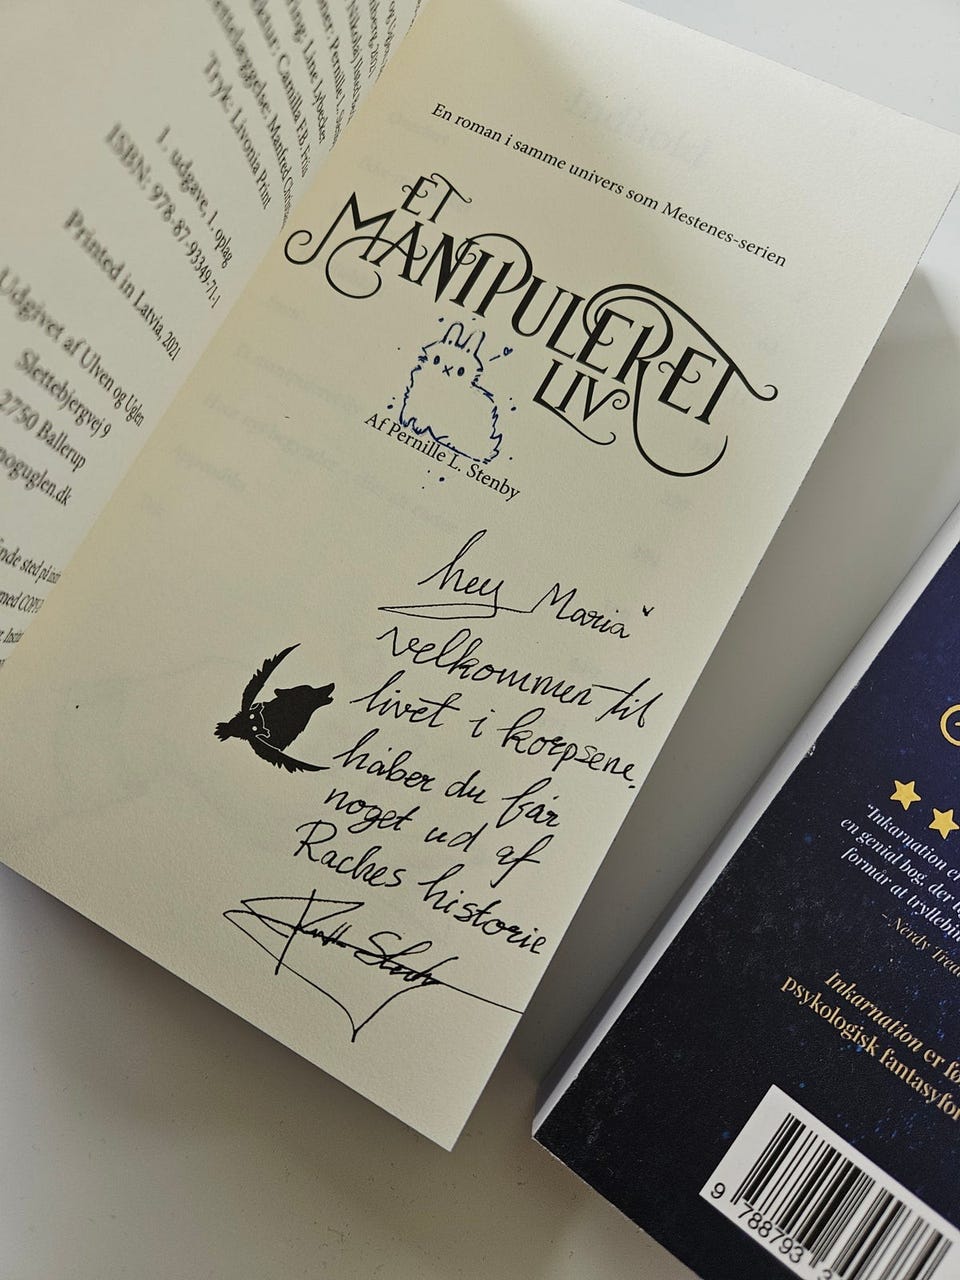 Tryk: Livonia Print
1. udgave, 1. oplag
ISBN: 978-87-93349-71-1
Printed in Latvia, 2021
Udgivet af Ulven og Uglen
Slettebjergvej 9
2750 Ballerup
En roman i samme univers som Mestenes-serien
ET
MANIPULERET
LIV
Af Pernille L. Stenby
hey Maria
velkommen til
livet i korpsene.
håber du får
noget ud af
Raches historie
"Inkarnation er
en genial bog, der
formår at
- Nerdy
Inkarnation er
psykologisk
9 788793